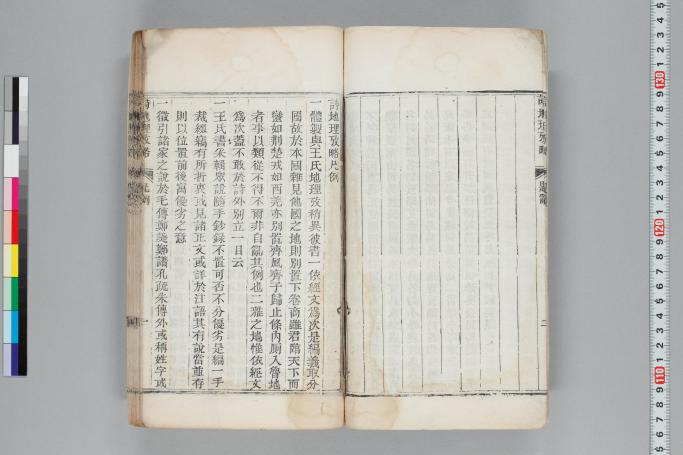 詩地理攷略
二
詩地理攷略凡例
一體製與王氏地理攷稍異彼書一依經文爲次是編義取分
國故於本國雜見他國之地則別置下卷商雖君臨天下而
蠻如荆楚戎如西羌亦別置齊風齊子歸止條內厠入魯地
者事以類從不得不爾非自亂其例也二雅之地惟依經文
爲次蓋不敢於詩外別立一目云
一王氏書采輯眾說隨手鈔錄不置可否不分優劣是編一手
裁經編有所折衷或見諸正文或詳於注語其有說當並存
則以位置前後寓優劣之意
一徵引諸家之說於毛傳鄭箋鄭譜孔疏朱傳外或稱姓字或
詩地理攷略
凡例
一